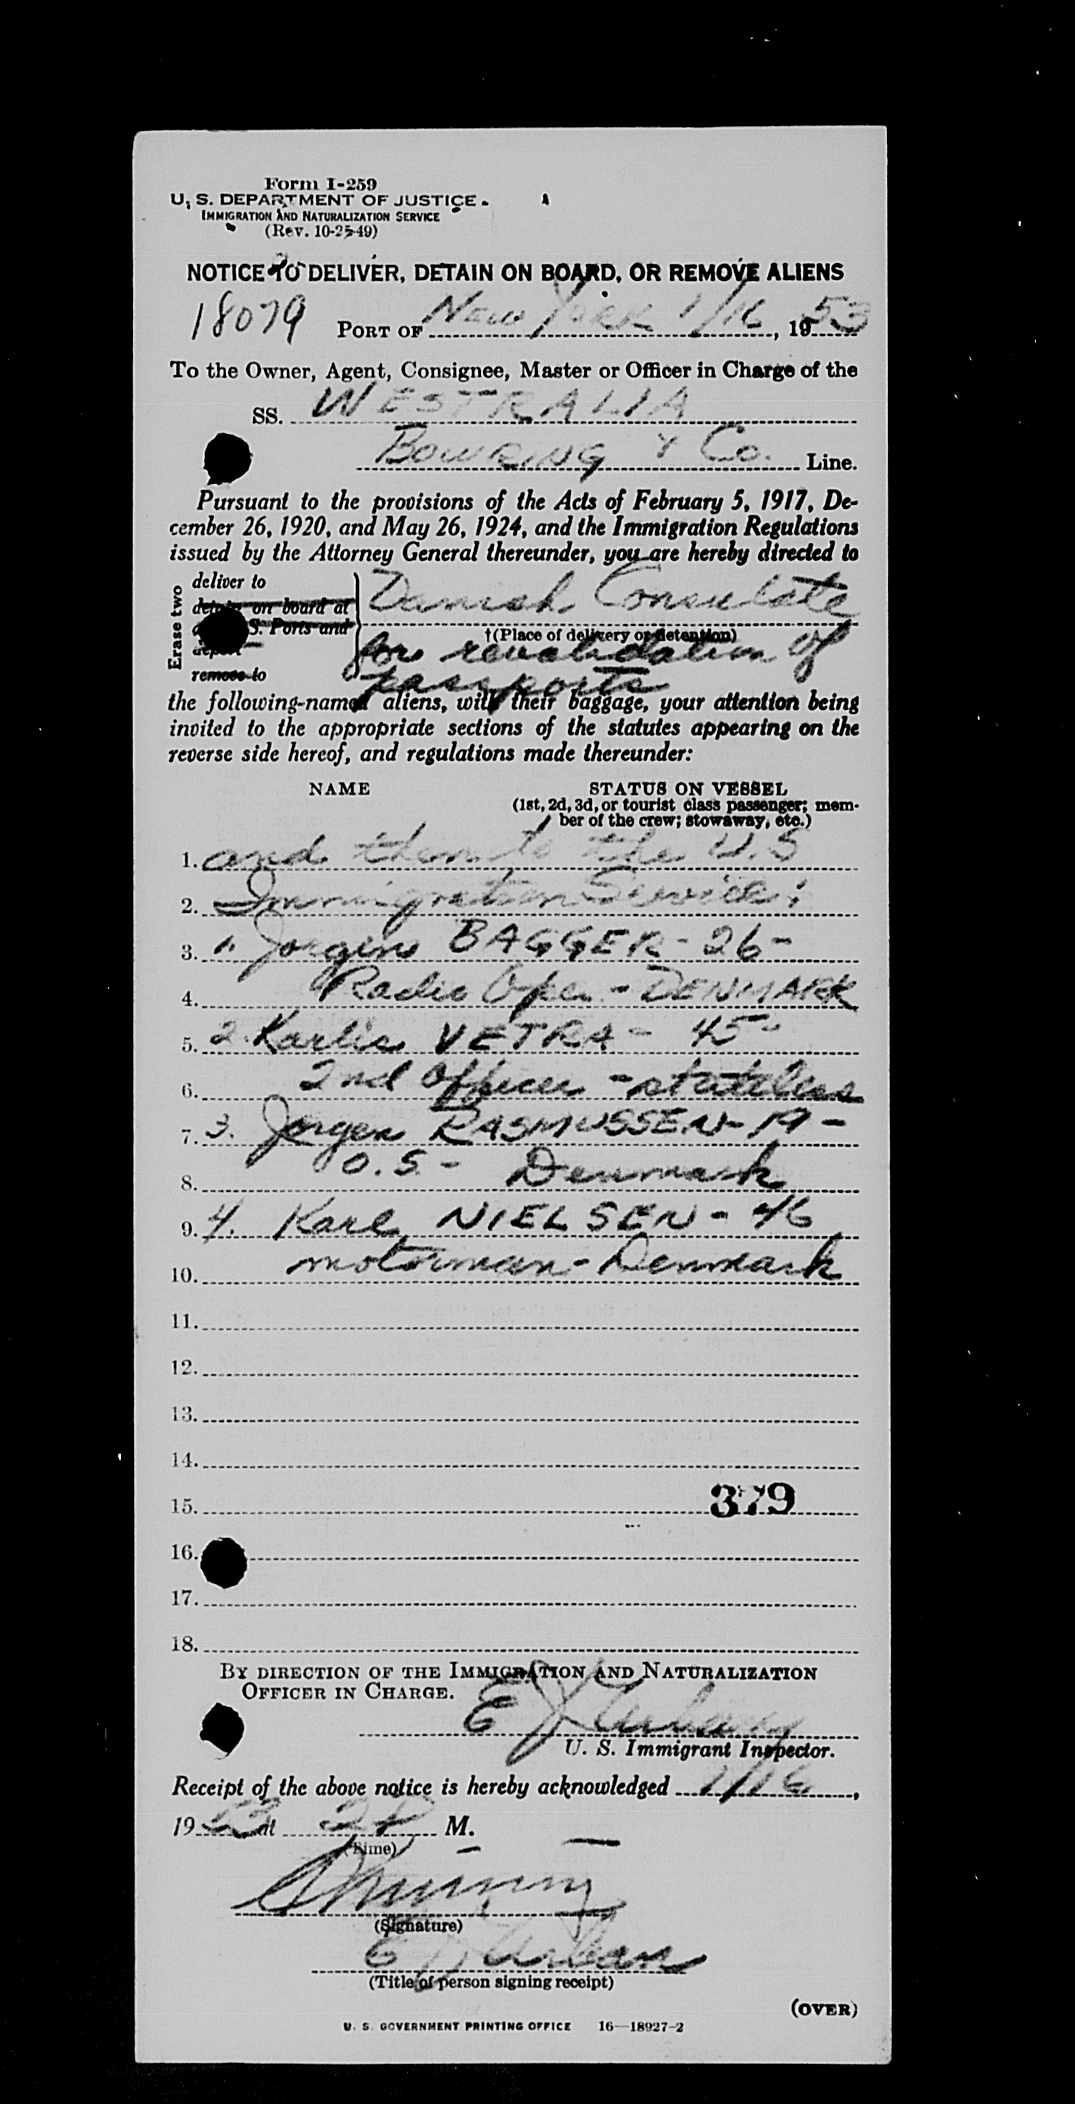 Form I-259
U. S. DEPARTMENT OF JUSTICE
IMMIGRATION AND NATURALIZATION SERVICE
(Rev. 10-25-49)
NOTICE TO DELIVER, DETAIN ON BOARD, OR REMOVE ALIENS
18079 PORT OF New York 1/16, 1953
To the Owner, Agent, Consignee, Master or Officer in Charge of the
SS. WESTRALIA
Bowring & Co. Line.
Pursuant to the provisions of the Acts of February 5, 1917, De-
cember 26, 1920, and May 26, 1924, and the Immigration Regulations
issued by the Attorney General thereunder, you are hereby directed to
Erase two
deliver to
detain on board at
S. Ports and
deport
remove to
Danish Consulate
†(Place of delivery or detention)
for revalidation of
passports
the following-named aliens, with their baggage, your attention being
invited to the appropriate sections of the statutes appearing on the
reverse side hereof, and regulations made thereunder:
NAME STATUS ON VESSEL
(1st, 2d, 3d, or tourist class passenger; mem-
ber of the crew; stowaway, etc.)
1. and then to the U.S
2. Immigration Service:
3. 1. Jorgen BAGGER - 26 -
4. Radio Oper. - DENMARK
5. 2. Karlis VETRA - 45 -
6. 2nd Officer - stateless
7. 3. Jorgen RASMUSSEN - 19 -
8. O.S. - Denmark
9. 4. Karl NIELSEN - 46
10. motorman - Denmark
11.
12.
13.
14.
15. 379
16.
17.
18.
BY DIRECTION OF THE IMMIGRATION AND NATURALIZATION
OFFICER IN CHARGE.
E J Urban
U. S. Immigrant Inspector.
Receipt of the above notice is hereby acknowledged 1/16,
1953 at 2 P M.
(Time)
(Signature)
E J Urban
(Title of person signing receipt)
(OVER)
U. S. GOVERNMENT PRINTING OFFICE 16—18927-2